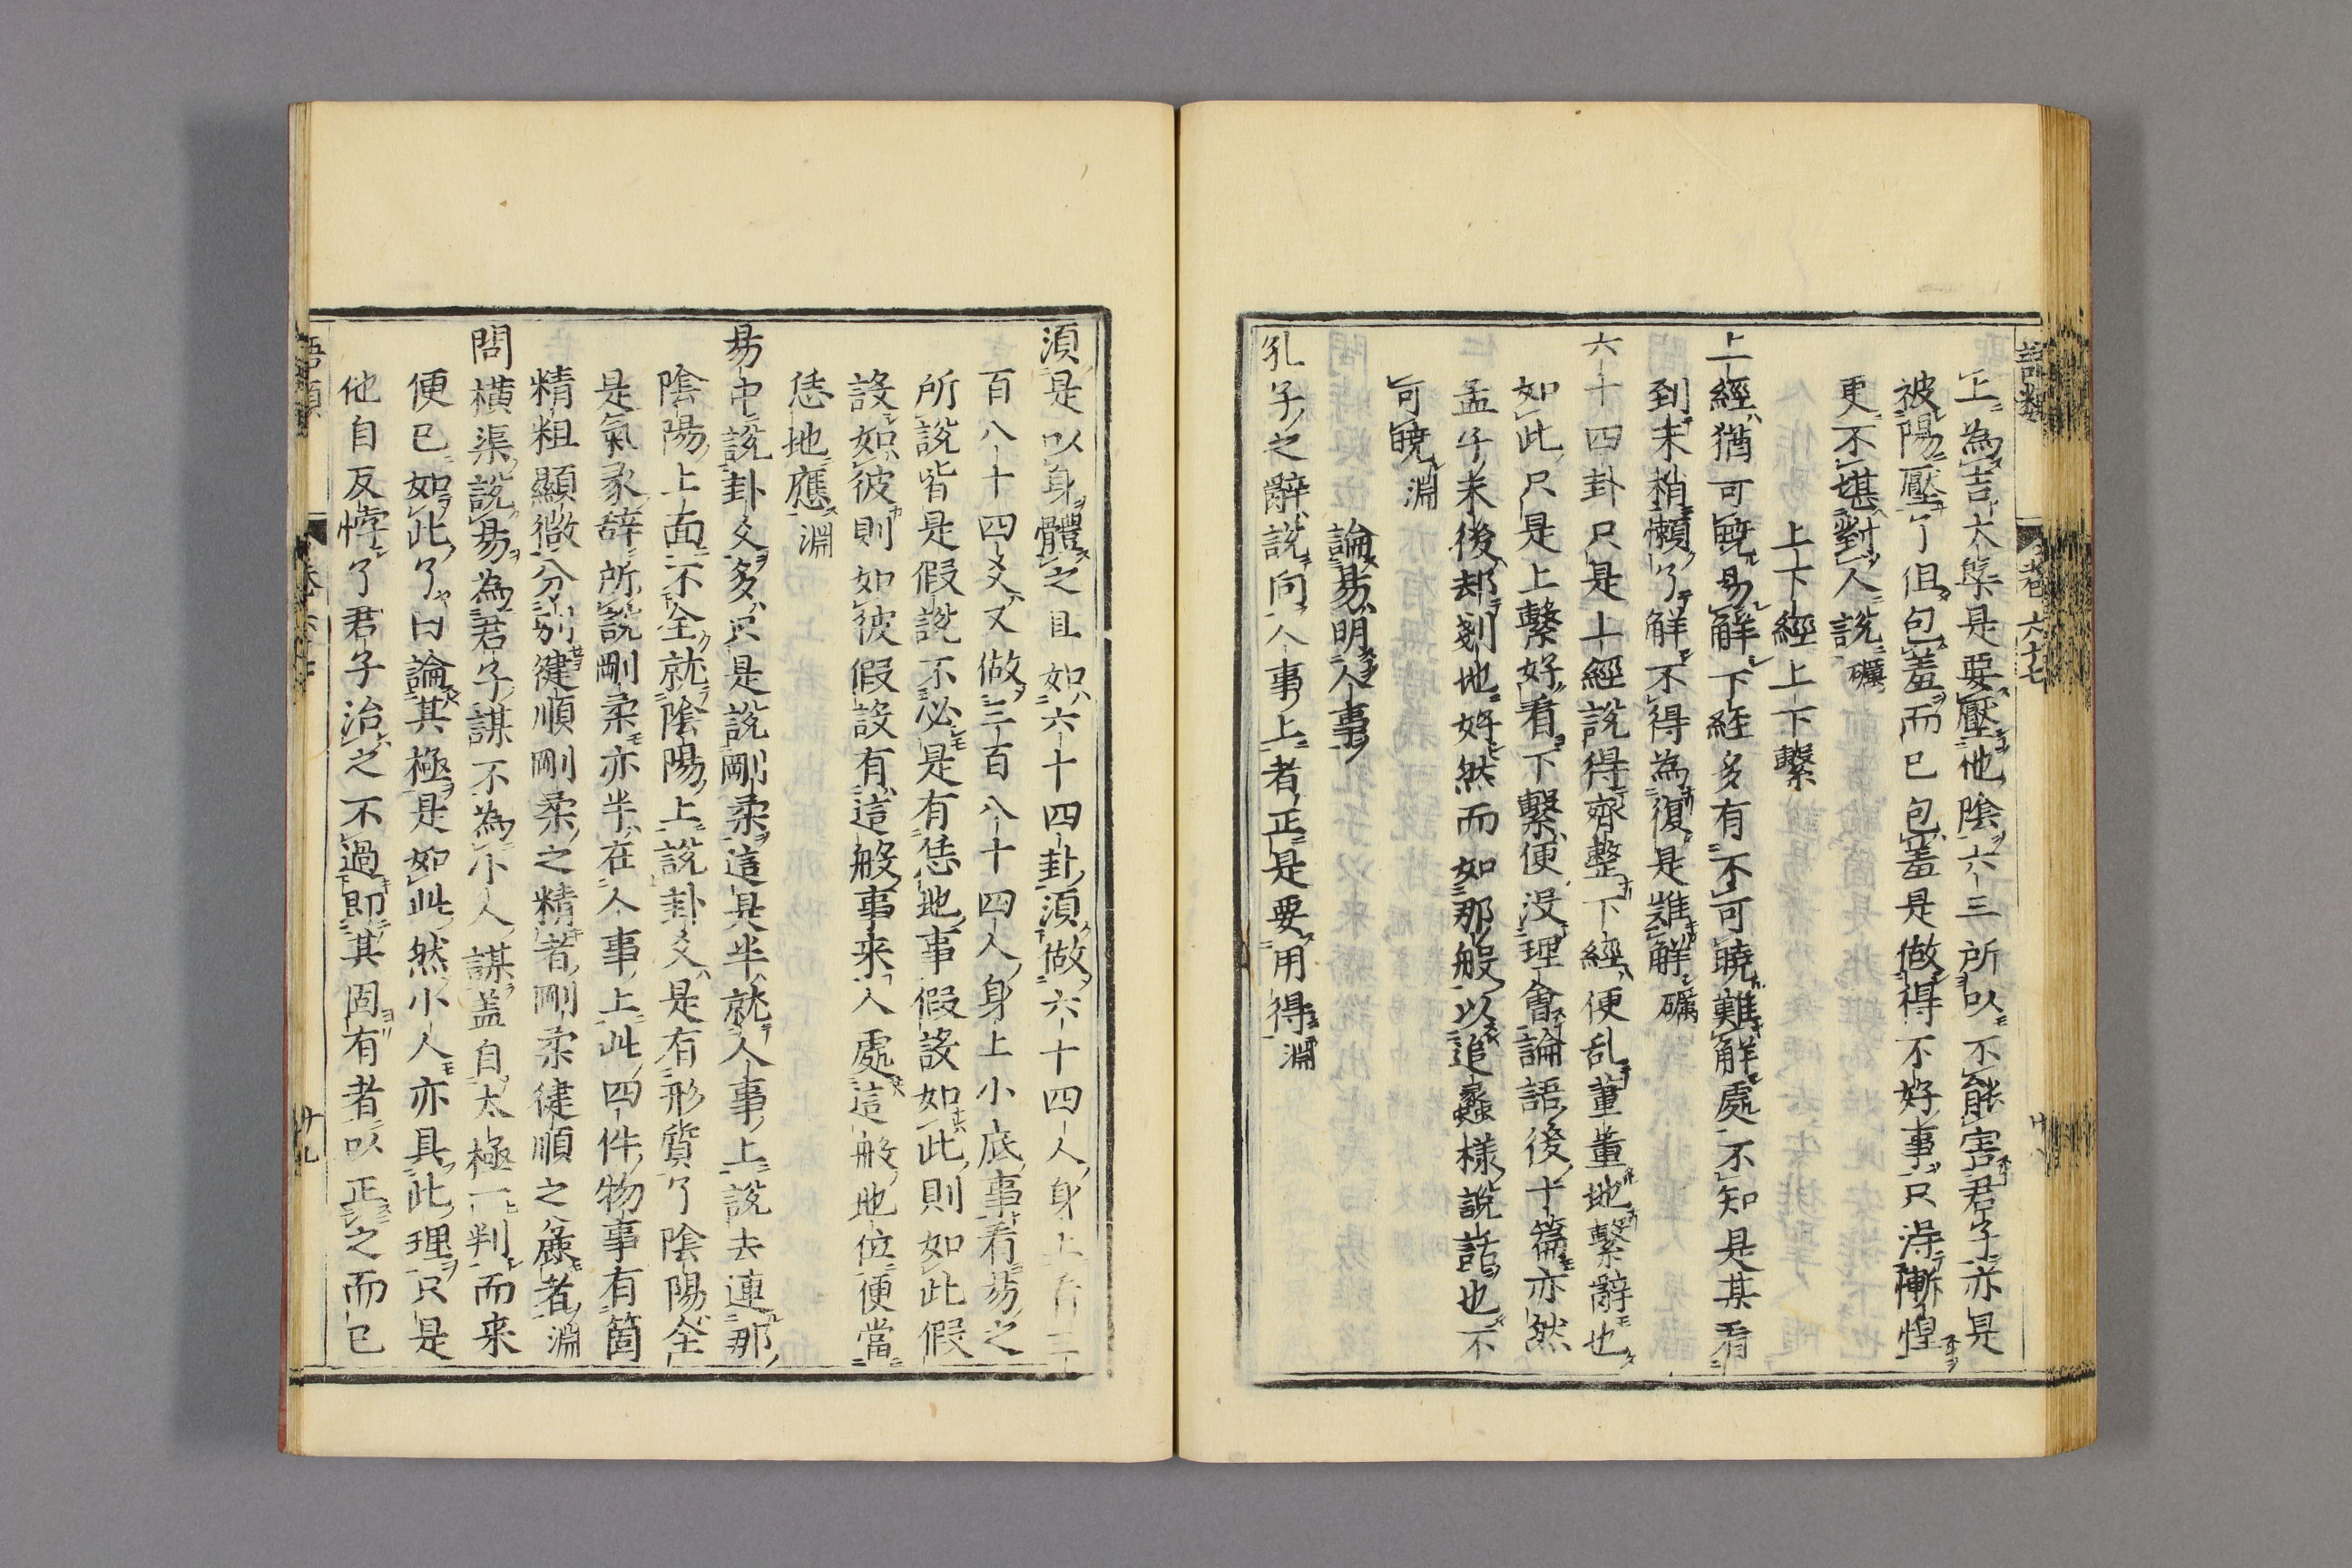 語類 巻六十七 廿八
上為吉大槩是要壓他陰六三所以不能害君子亦是
被陽壓了但包羞而已包羞是做得不好事只得慚惶
更不堪對人說礪
上下經上下繫
上經猶可曉易解下經多有不可曉難解處不知是某看
到末梢懶了解不得為復是難解礪
六十四卦只是上經說得齊整下經便乱董董地繫辭也
如此只是上繫好看下繫便没理會論語後十篇亦然
孟子末後却剗地好然而如那般以追蠡樣說話也不
可曉淵
論易明人事
孔子之辭說向人事上者正是要用得淵
須是以身體之且如六十四卦須做六十四人身上看三
百八十四爻又做三百八十四人身上小底事看易之
所說皆是假說不必是有恁地事假設如此則如此假
設如彼則如彼假設有這般事来人處這般地位便當
恁地應淵
易中說卦爻多只是說剛柔這是半就人事上說去連那
陰陽上面不全就陰陽上說卦爻是有形質了陰陽全
是氣彖辞所說剛柔亦半在人事上此四件物事有箇
精粗顯微分別健順剛柔之精者剛柔健順之麤者淵
問橫渠說易為君子謀不為小人謀盖自太極一判而来
便已如此了曰論其極是如此然小人亦具此理只是
他自反悖了君子治之不過即其固有者以正之而已
語類 巻六十七 廿九